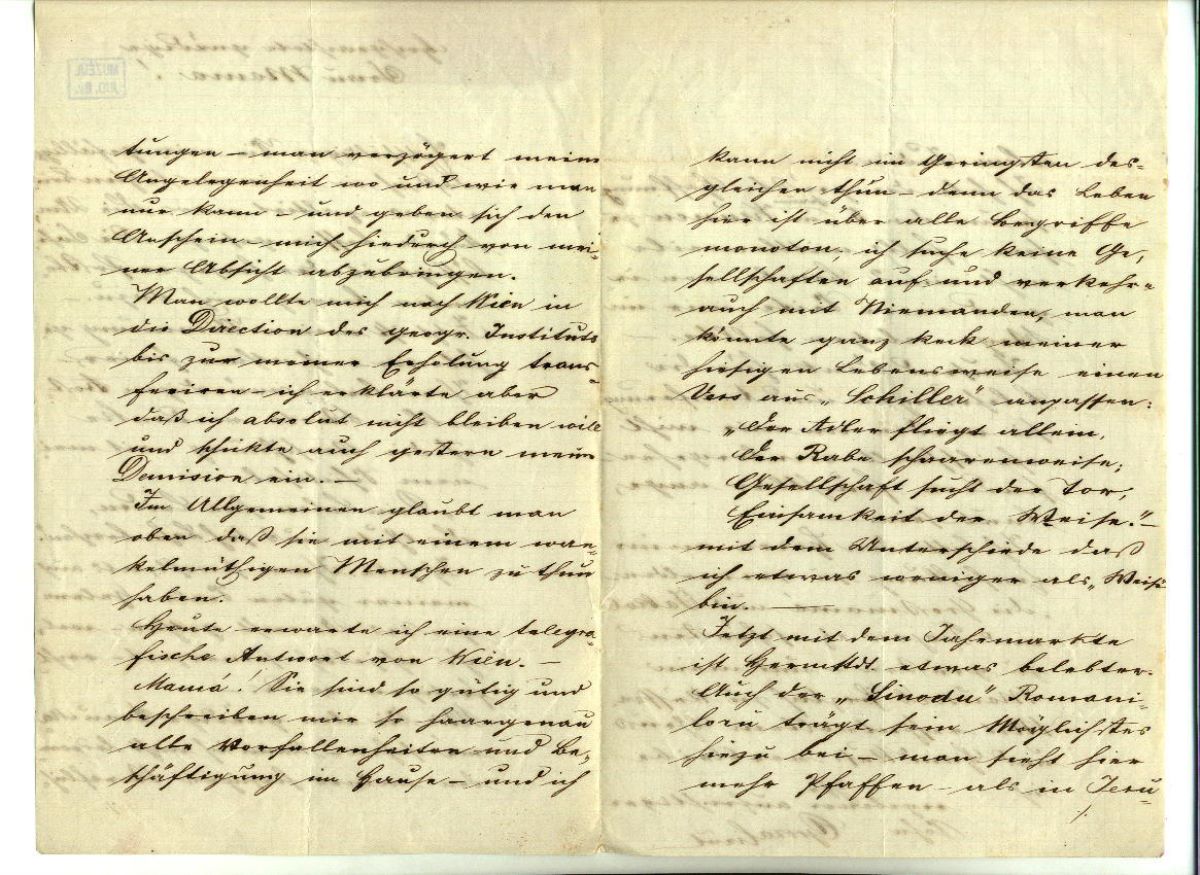 tungen – man verzögert meine
Angelegenheit wo und wie man
nur kann – und geben sich den
Anschein – mich hiedurch von mei-
ner Absicht abzubringen.
Man wollte mich nach Wien in
die Direction des geogr. Instituts
bis zur meiner Erholung trans-
feriren – ich erklärte aber
daß ich absolut nicht bleiben will
und schikte auch gestern meine
Demision ein. –
Im Allgemeinen glaubt man
oben daß sie mit einem wan-
kelmüthigen Menschen zu thun
haben.
Heute erwarte ich eine telegra-
fische Antwort von Wien. –
Mamá! Sie sind so gütig und
beschreiben mir so haargenau
alle Vorfallenheiten und Be-
schäftigung im Hause – und ich
kann nicht im Geringsten des-
gleichen thun – denn das Leben
hier ist über alle Begriffe
monoton, ich suche keine Ge-
sellschaften auf und verkehre
auch mit Niemanden, man
könnte ganz keck meiner
hiesigen Lebensweise einen
Vers aus „Schiller" anpassen:
„Der Adler fliegt allein,
Der Rabe schaarenweise;
Gesellschaft sucht der Tor,
Einsamkeit der Weise." –
mit dem Unterschiede daß
ich etwas weniger als „Weise
bin. –
Jetzt mit dem Jahrmarkte
ist Hermstdt. etwas belebter.
Auch der „Sinodu" Romani-
loru trägt sein Möglichstes
hiezu bei – man sieht hier
mehr Pfaffen – als in Jeru-
./.
MUZEUL